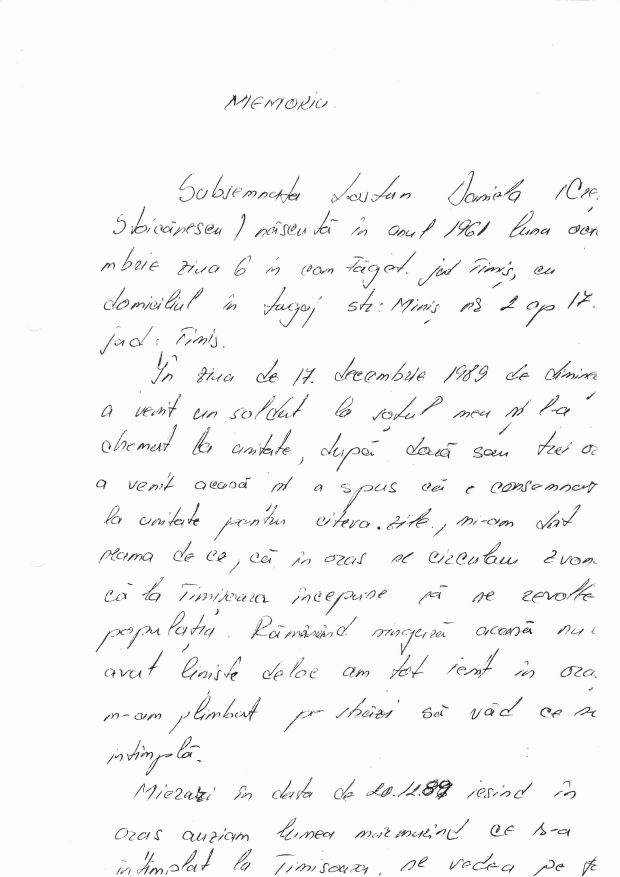 MEMORIU.
Subsemnata Lostun Daniela (Cre
Stoicănescu) născută în anul 1961 luna oct
mbrie ziua 6 în com Făget. jud Timiș, cu
domiciliul în Lugoj str: Miniș nr 2 ap 17.
jud: Timiș.
În ziua de 17. decembrie 1989 de dimine
a venit un soldat la soțul meu și l-a
chemat la unitate, după două sau trei or
a venit acasă și a spus că e consemnat
la unitate pentru cîteva zile, mi-am dat
seama de ce, că în oraș se circulau zvon
că la Timișoara începuse să se revolte
populația. Rămănănd singură acasă nu
avut liniște deloc am tot ieșit în ora
m-am plimbat pe străzi să văd ce se
intîmplă.
Miercuri în data de 20.12.89 iesind în
oraș auziam lumea murmurînd ce s-a
întîmplat la Timișoara, se vedea pe fe